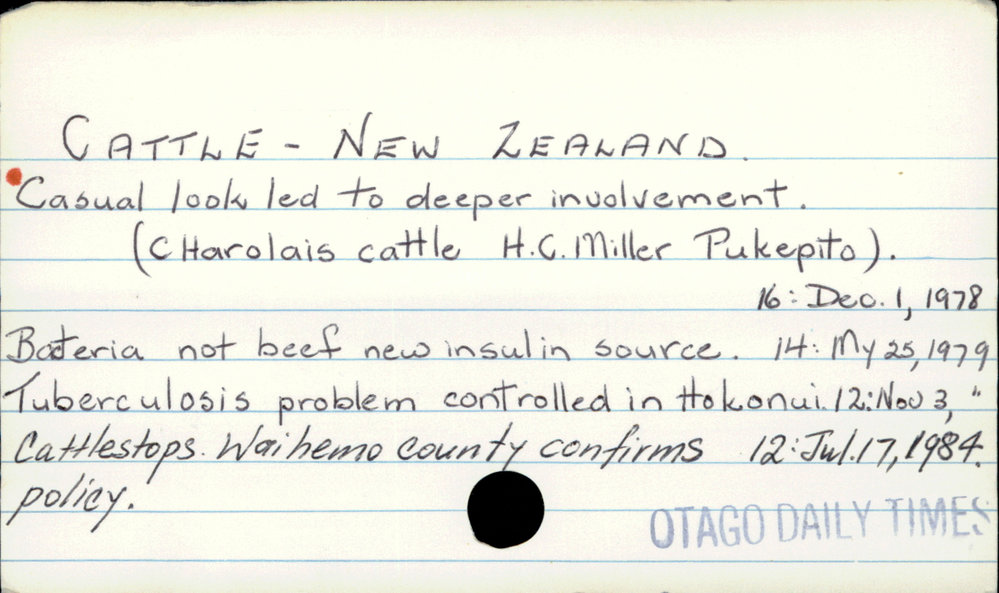 CATTLE - NEW ZEALAND.
Casual look led to deeper involvement.
(CHarolais cattle H.C. Miller Pukepito).
16: Dec. 1, 1978
Bateria not beef new insulin source. 14: My 25, 1979
Tuberculosis problem controlled in Hokonui. 12: Nov 3, "
Cattlestops. Waihemo county confirms 12: Jul. 17, 1984.
policy.
OTAGO DAILY TIMES